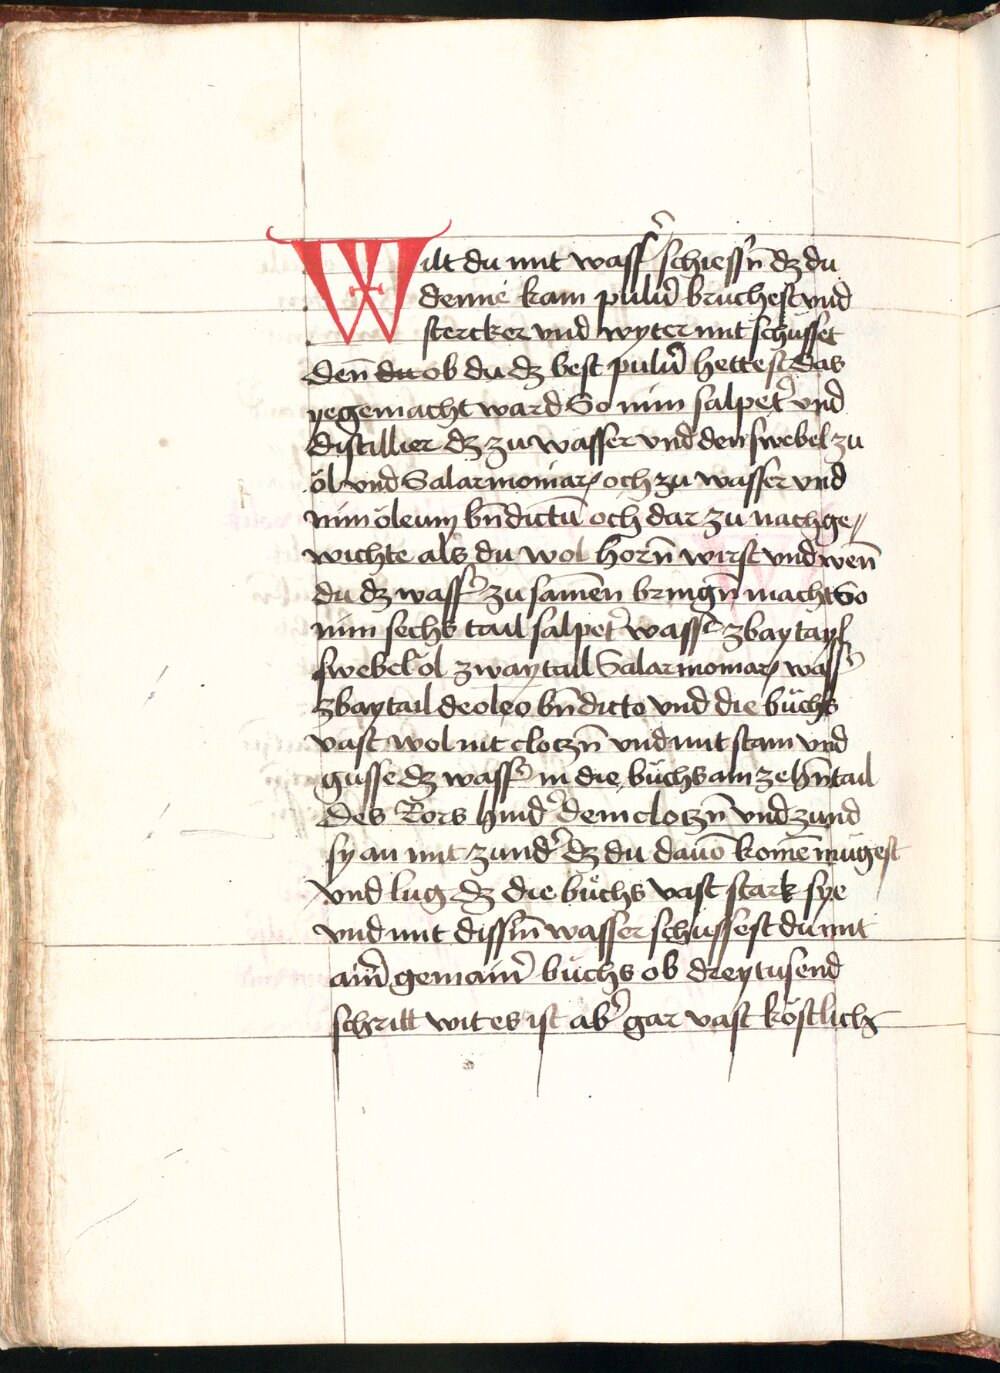 Wilt du mit wasser schiessn̄ dz du
denne kain puluer bruchest vnd
stercker vnd wyter mit schüssest
denn̄ du ob du dz best puluer hettest das
ye gemacht ward So nim salpeter vnd
distillier dz zu wasser vnd den swebel zu
öl vnd Salarmoniac och zu wasser vnd
nim öleum bn̄dictū och dar zu nach ge⸗
wichte als du wol hörn̄ wirst vnd wen̄
du dz wasser zu samen bringn̄ macht So
nim sechs tail salpeter wasser zbay tayl
swebel öl zway tail Salarmoniac wasser
zbay tail de oleo bn̄dicto vnd die büchs
vast wol mit cloczn̄ vnd mit stain vnd
gusse dz wasser in die büchs ain zehn̄tail
des Rors hinder dem cloczn̄ vnd zünd
sy an mit zunder dz du dauō komē mügest
vnd lug dz die büchs vast stark sye
vnd mit dissem wasser schüssest du mit
ainer gemainer büchs ob drey tusend
schritt wit es ist aber gar vast köstlich